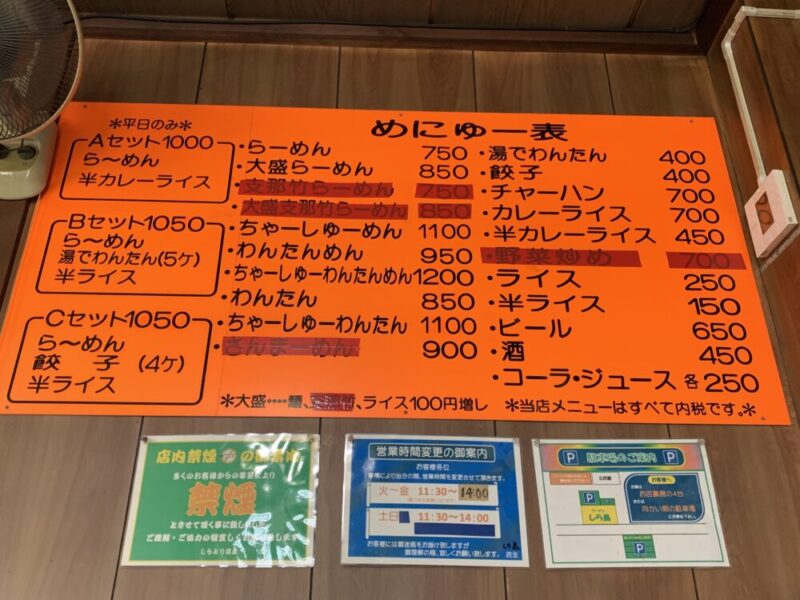 めにゅー表
＊平日のみ＊
Aセット1000
ら〜めん
半カレーライス
Bセット1050
ら〜めん
湯でわんたん(5ケ)
半ライス
Cセット1050
ら〜めん
餃子 (4ケ)
半ライス
・らーめん 750
・大盛らーめん 850
・支那竹らーめん 750
・大盛支那竹らーめん 850
・ちゃーしゅーめん 1100
・わんたんめん 950
・ちゃーしゅーわんたんめん 1200
・わんたん 850
・ちゃーしゅーわんたん 1100
・さんまーめん 900
・湯でわんたん 400
・餃子 400
・チャーハン 700
・カレーライス 700
・半カレーライス 450
・野菜炒め 700
・ライス 250
・半ライス 150
・ビール 650
・酒 450
・コーラ・ジュース 各250
＊大盛‥‥麺、、ライス100円増し
＊当店メニューはすべて内税です。＊
店内禁煙
多くのお客様からの要望により
禁煙
とさせて頂く事に致しました
営業時間変更の御案内
お客様各位
火〜金 11:30〜14:00
土日 11:30〜14:00
お客様には御迷惑をお掛け致しますが
御理解の程、宜しくお願い致します。
店主
P 駐車場のご案内 P
お客様へ
お店裏側の4台
向かい側の駐車場
P
ラーメン
しら鳥
P